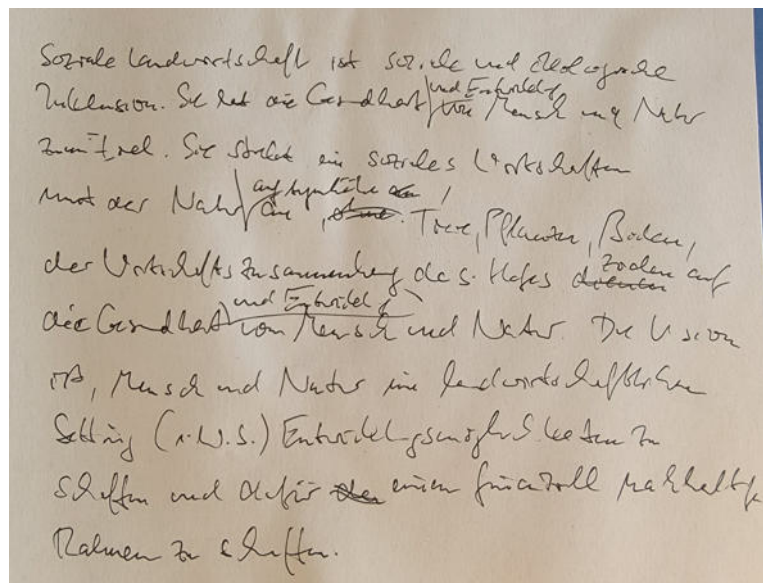 Soziale Landwirtschaft ist soziale und ökologische
Inklusion. Sie hat die Gesundheit und Entwicklung von Mensch und Natur
zum Ziel. Sie strebt ein soziales Wirtschaften
mit der Natur an. Tiere, Pflanzen, Boden,
der Wirtschaftszusammenhang des Hofes zielen auf
die Gesundheit und Entwicklung von Mensch und Natur. Die Vision
ist, Mensch und Natur im landwirtschaftlichen
Setting (i.w.S.) Entwicklungsmöglichkeiten zu
schaffen und dafür einen finanziell nachhaltigen
Rahmen zu schaffen.